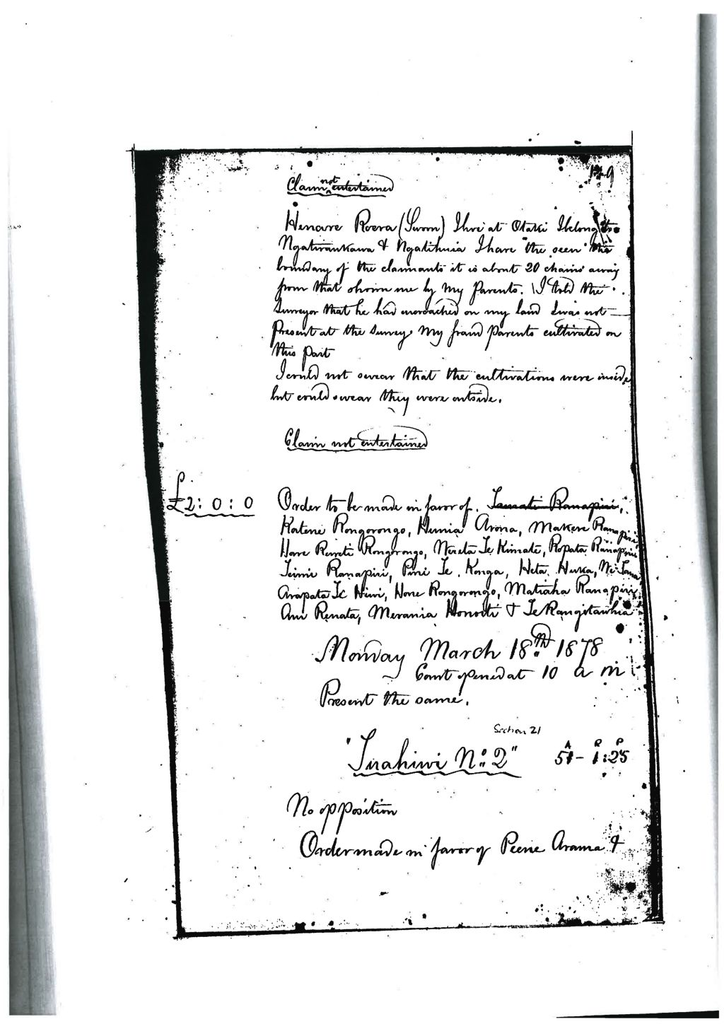 129
Claim not entertained
Henare Roera (Sworn) I live at Otaki I belong to
Ngatiraukawa & Ngatihuia I have "the seen" the
boundary of the claimants it is about 20 chains away
from that shown me by my Parents. I told the
Surveyor that he had encroached on my land I was not
Present at the survey. My Grand Parents cultivated on
this part
I could not swear that the cultivations were inside
but could swear they were outside.
Claim not entertained
£2:0:0 Order to be made in favor of. Tamati Ranapiri,
Katene Rongorongo, Hunia Arona, Makere Ranapiri
Hare Rongorongo, Te Kimate, Ropata Ranapiri
Ranapiri, Te Konga, Heta
Arapata Te Hiwi, Hone Rongorongo, Matiaha Ranapiri
Ani Renata, Merania & Te Rangitawhia
Monday March 18th 1878
Court opened at 10 a m
Present the same.
Section 21
"Tuahiwi No 2" A R P 51-1:25
No opposition
Order made in favor of Peene Arama &